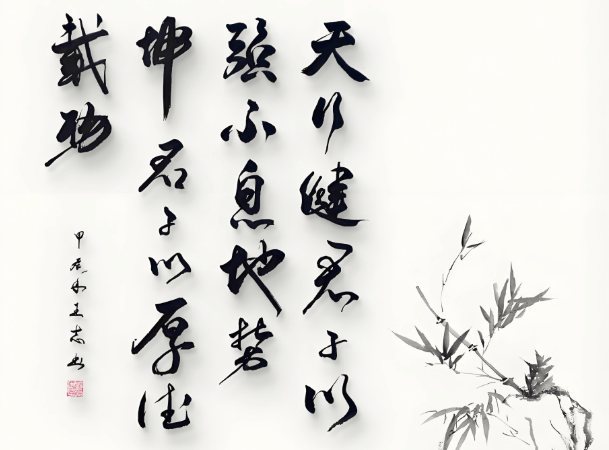 天行健君子以
强不息地势
坤君子以厚德
載物
甲辰王志书